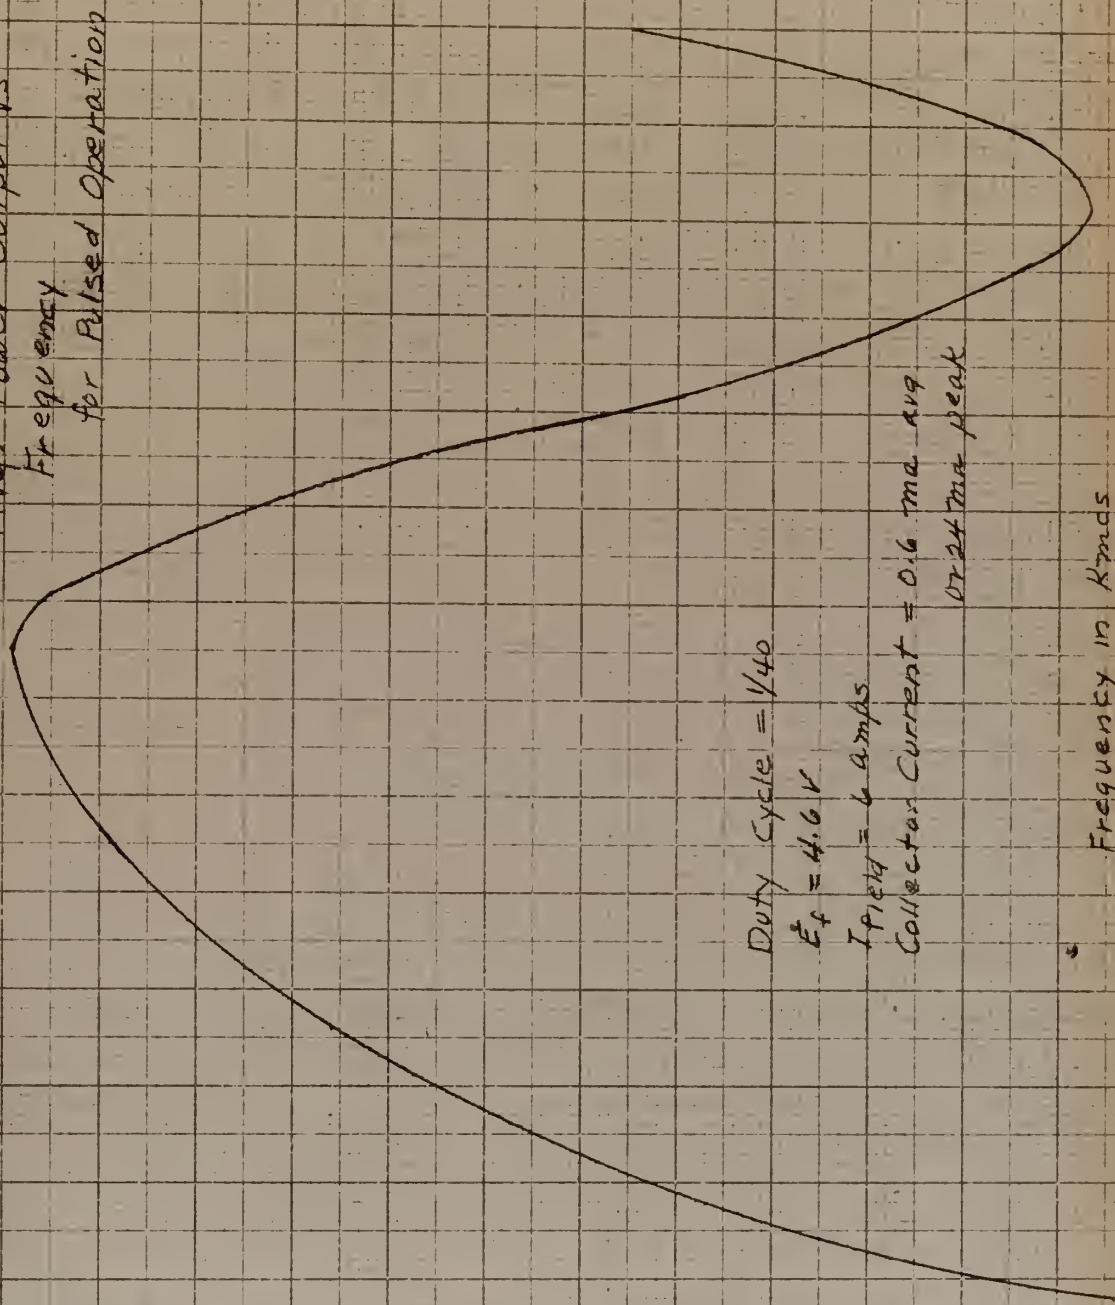 Power Output vs
Frequency
for Pulsed Operation
Duty Cycle = 1/40
= 4.6 V
I field = 6 amps
Collector Current = 0.6 ma avg
or 24 ma peak
Frequency in Kmcs